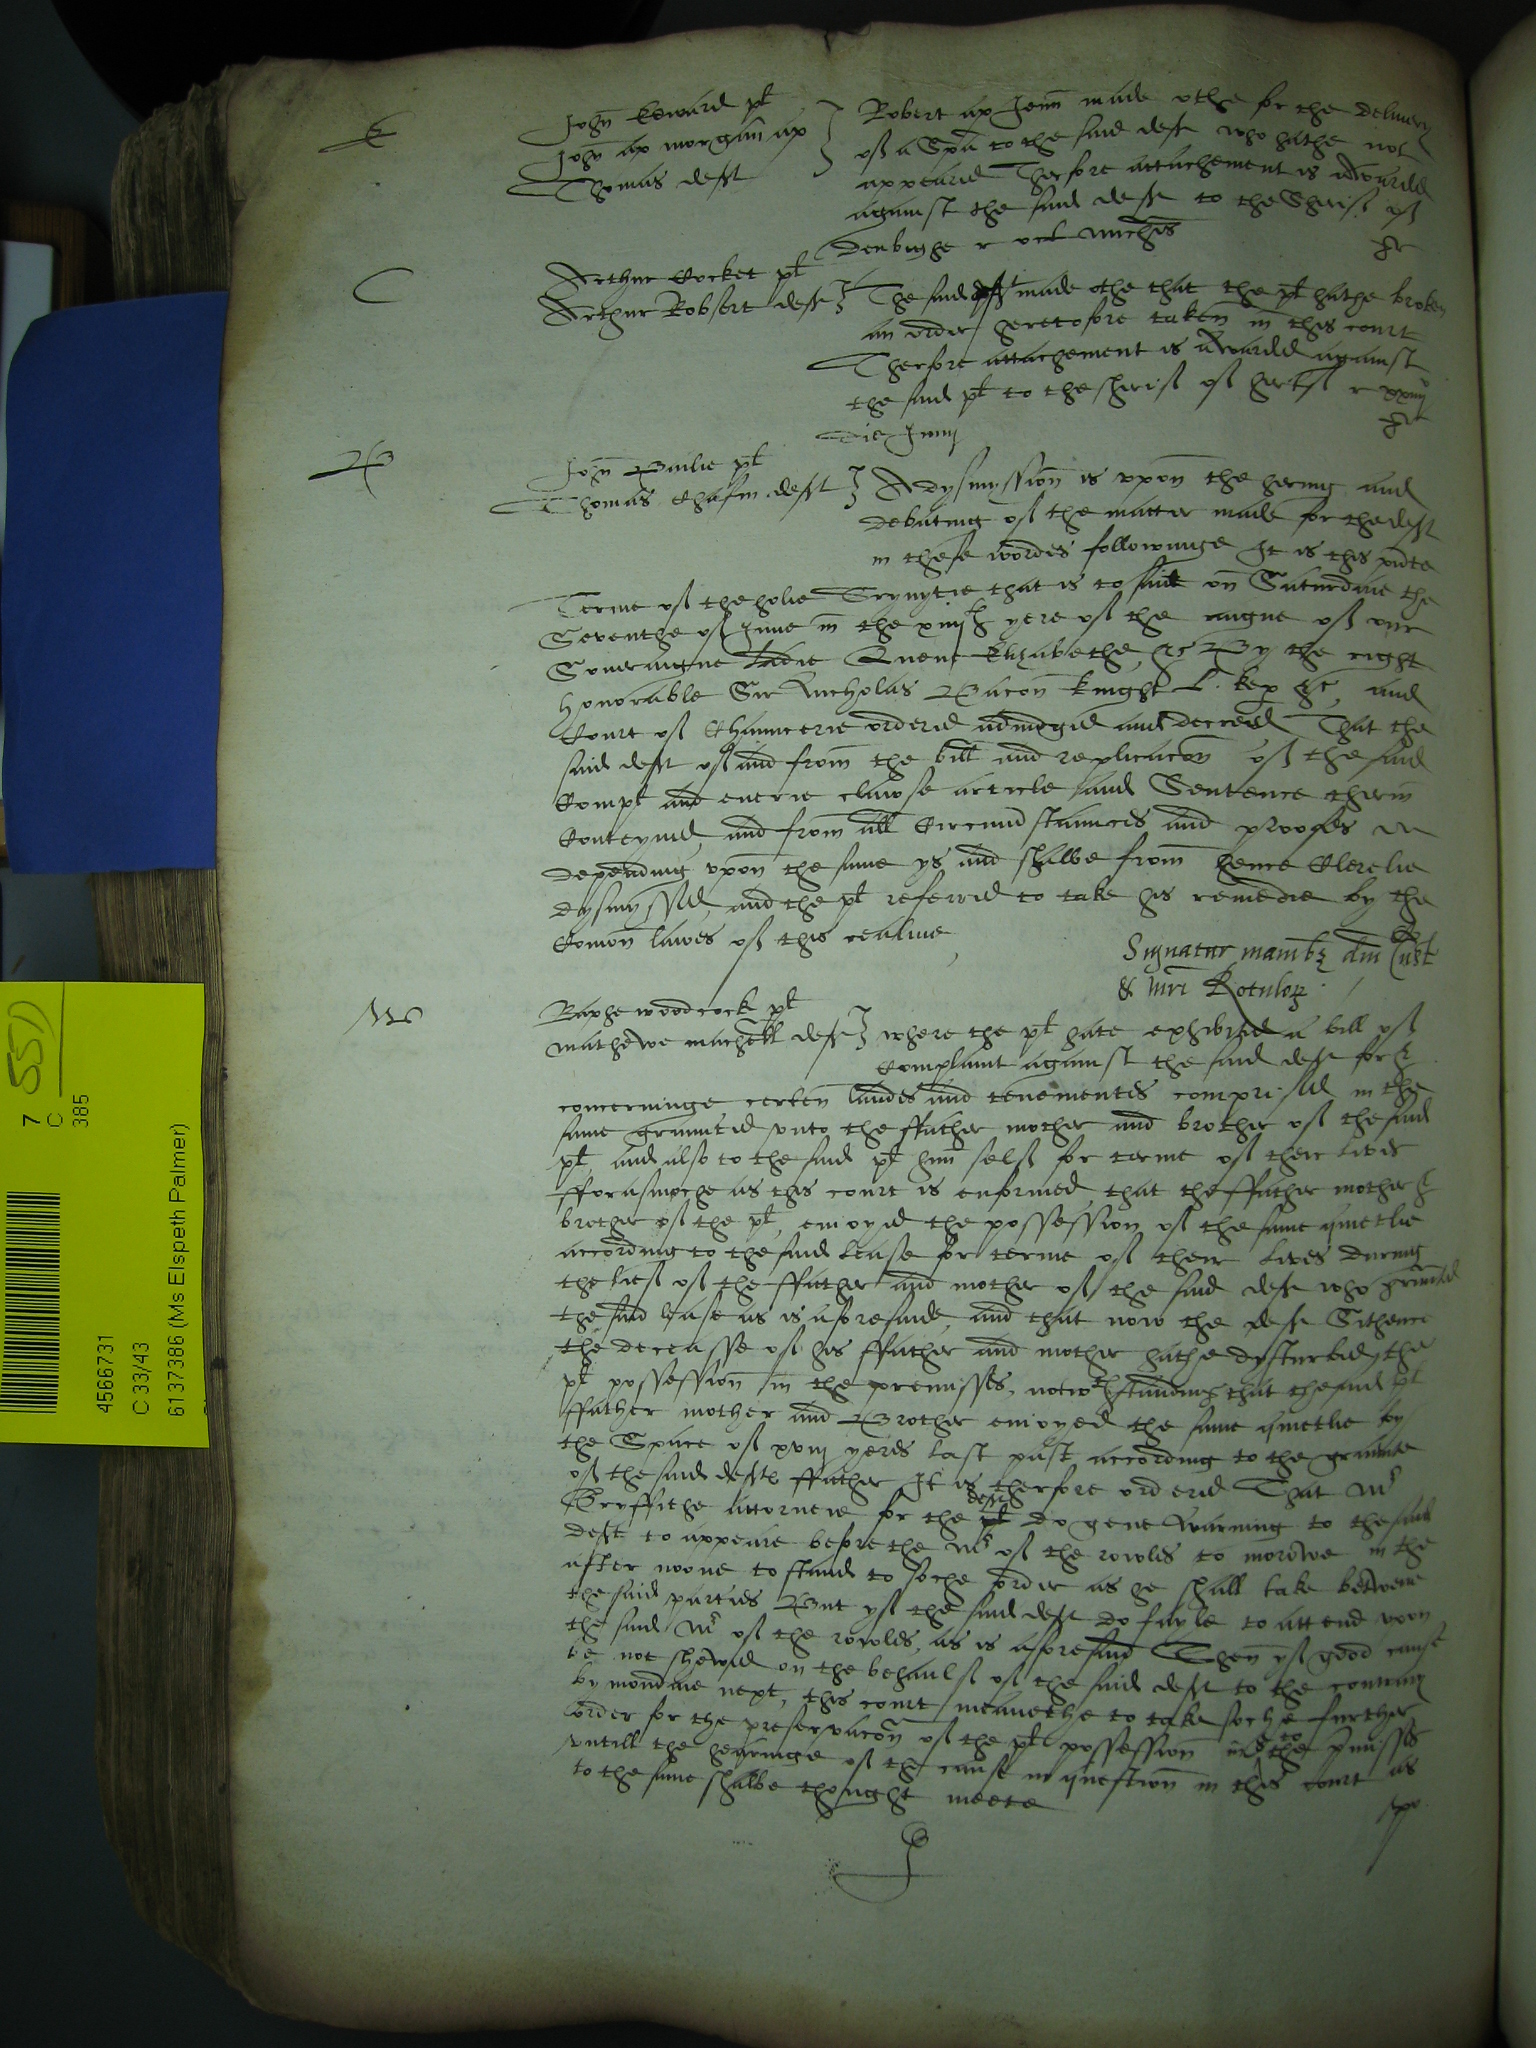 E
John Edward plt
John ap morgan ap
Thomas defft
Robert ap Jenn made othe for the delivery
off a Spa to the said deff who hathe not
appeared Therfore attachement is awarded
against the said deff to the Sheriff off
Denbighe r oct michis
C
Arthur Cocket plt
Arthur Robsert deff
The said deff made othe that the plt hathe broken
an order heretofore taken in this court
Therfore attachement is awarded against
the said plt to the sheriff off hertff r xxiiij
die Junij
B
John Bailie plt
Thomas Chafin defft
A dysmyssion is upon the hering and
debating off the matter made for the defft
in these wordes followinge It is this pnte
Terme off the holie Trynytie that is to saie on Saturdaie the
Seventhe off June in the xiiijth yere off the raigne off our
Soueraigne Ladie Quene Elizabethe &c By the right
honorable Sir Nicholas Bacon knight L. kep &c and
Court off Chauncerie ordered adiudged and decreed That the
said defft off and from the bill and replicacon off the said
Complt and euerie clawse article and Sentence therin
Conteyned, and from all Circumstaunces and prooffes
depending vpon the same ys and shalbe from hence Clerelie
dysmyssed, and the plt referred to take his remedie by the
Comon lawes off this realme
Signatur manibz dni Cust
& mri Rotuloz
W
Raphe woodcock plt
mathewe machell deff
where the plt hate exhibited a bill off
Complaint against the said deff for &
concerninge certen landes and tenementes comprised in the
same graunted vnto the ffather mother and brother off the said
plt, and also to the said plt him selff for terme off their lives
fforasmoche as this court is enformed that the ffather mother &
brother off the plt, enioyed the possession off the same quietlie
according to the said lease for terme off their lives during
the lieff off the ffather and mother off the said deff who graunted
the said lease as is aforesaide, and that now the deff Sithence
the deceasse off his ffather and mother hathe dysturbed the
plt possession in the premisses, notwthstanding that the said plt
ffather mother and Brother enioyed the same quietlie by
the Space off xviij yeres last past according to the graunte
off the said deffts ffather It is therfore ordered That Mr
Gryffithe Attorneie for the deff do geue warning to the said
deft to appeare before the Mr off the rowles to morowe in the
after noone to stand to soche order as he shall take betwene
the said parties But yff the said deff do fayle to attend vpon
the said Mr off the rowles, as is aforesaid Then yff good cause
be not shewed on the behaulff off the said defft to the contrary
by mondaie next, this court meanethe to take soche further
order for the preservacon off the plt possession in the pmisses
vntill the hearinge off the cause in question in this court as
to the same shalbe thought meete
4566731
C 33/43
6137386 (Ms Elspeth Palmer)
7
C
385